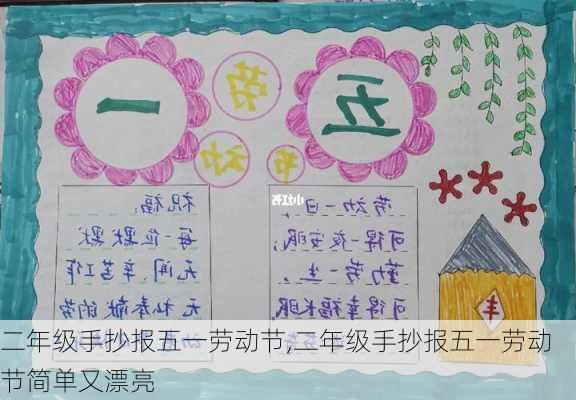 五一
劳动节
小红书
劳动一日,
可得一夜安眠;
勤劳一生,
可得幸福长眠
祝福:
每一位默默
无闻、辛苦工作
无私奉献的劳
丰
二年级手抄报五一劳动节,二年级手抄报五一劳动
节简单又漂亮